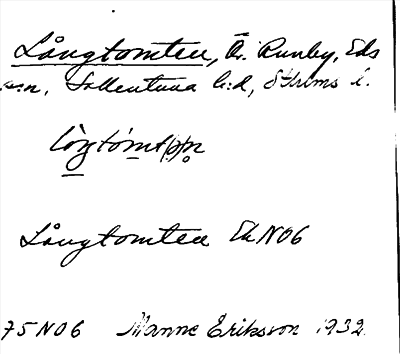 Långtomten, Ö. Runby, Eds
sn, Sollentuna h:d, Sthlms l.
Långtomten Ek N06
75 N06 Manne Eriksson 1932